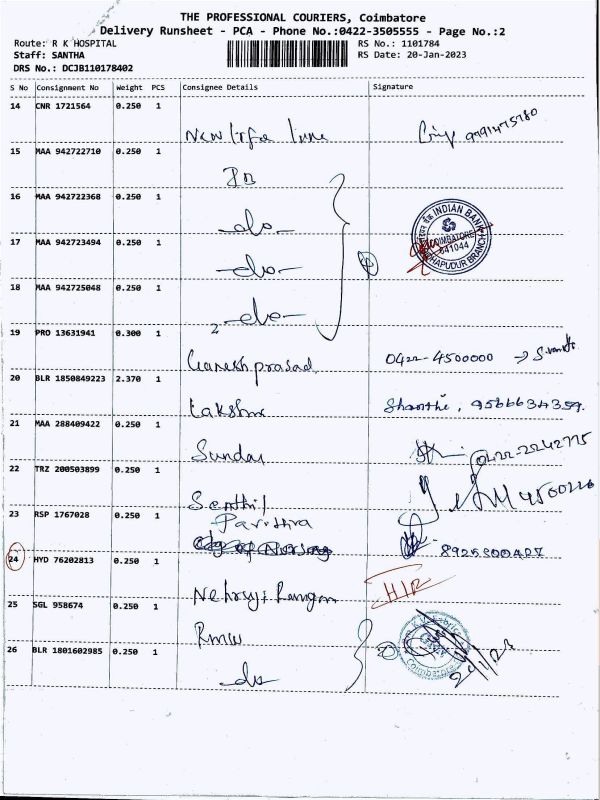 THE PROFESSIONAL COURIERS, Coimbatore
Delivery Runsheet - PCA - Phone No.:0422-3505555 - Page No.:2
Route: R K HOSPITAL
RS No.: 1101784
Staff: SANTHA
RS Date: 20-Jan-2023
DRS No.: DCJB110178402
S No Consignment No Weight PCS Consignee Details Signature
14 CNR 1721564 0.250 1
New Life Line
15 MAA 942722710 0.250 1
16 MAA 942722368 0.250 1
-do-
INDIAN BANK
COIMBATORE
641044
17 MAA 942723494 0.250 1
-do-
18 MAA 942725048 0.250 1
-do-
19 PRO 13631941 0.300 1
Ganesh prasad 0422-4500000
20 BLR 1850849223 2.370 1
Lakshmi Shanthi, 9566634359.
21 MAA 288409422 0.250 1
Sundar 0422-2242775
22 TRZ 200503899 0.250 1
Senthil 4500226
23 RSP 1767028 0.250 1
Pavithra
24 HYD 76202813 0.250 1
Nehru
25 SGL 958674 0.250 1
RMW
Coimbatore
26 BLR 1801602985 0.250 1
-do-